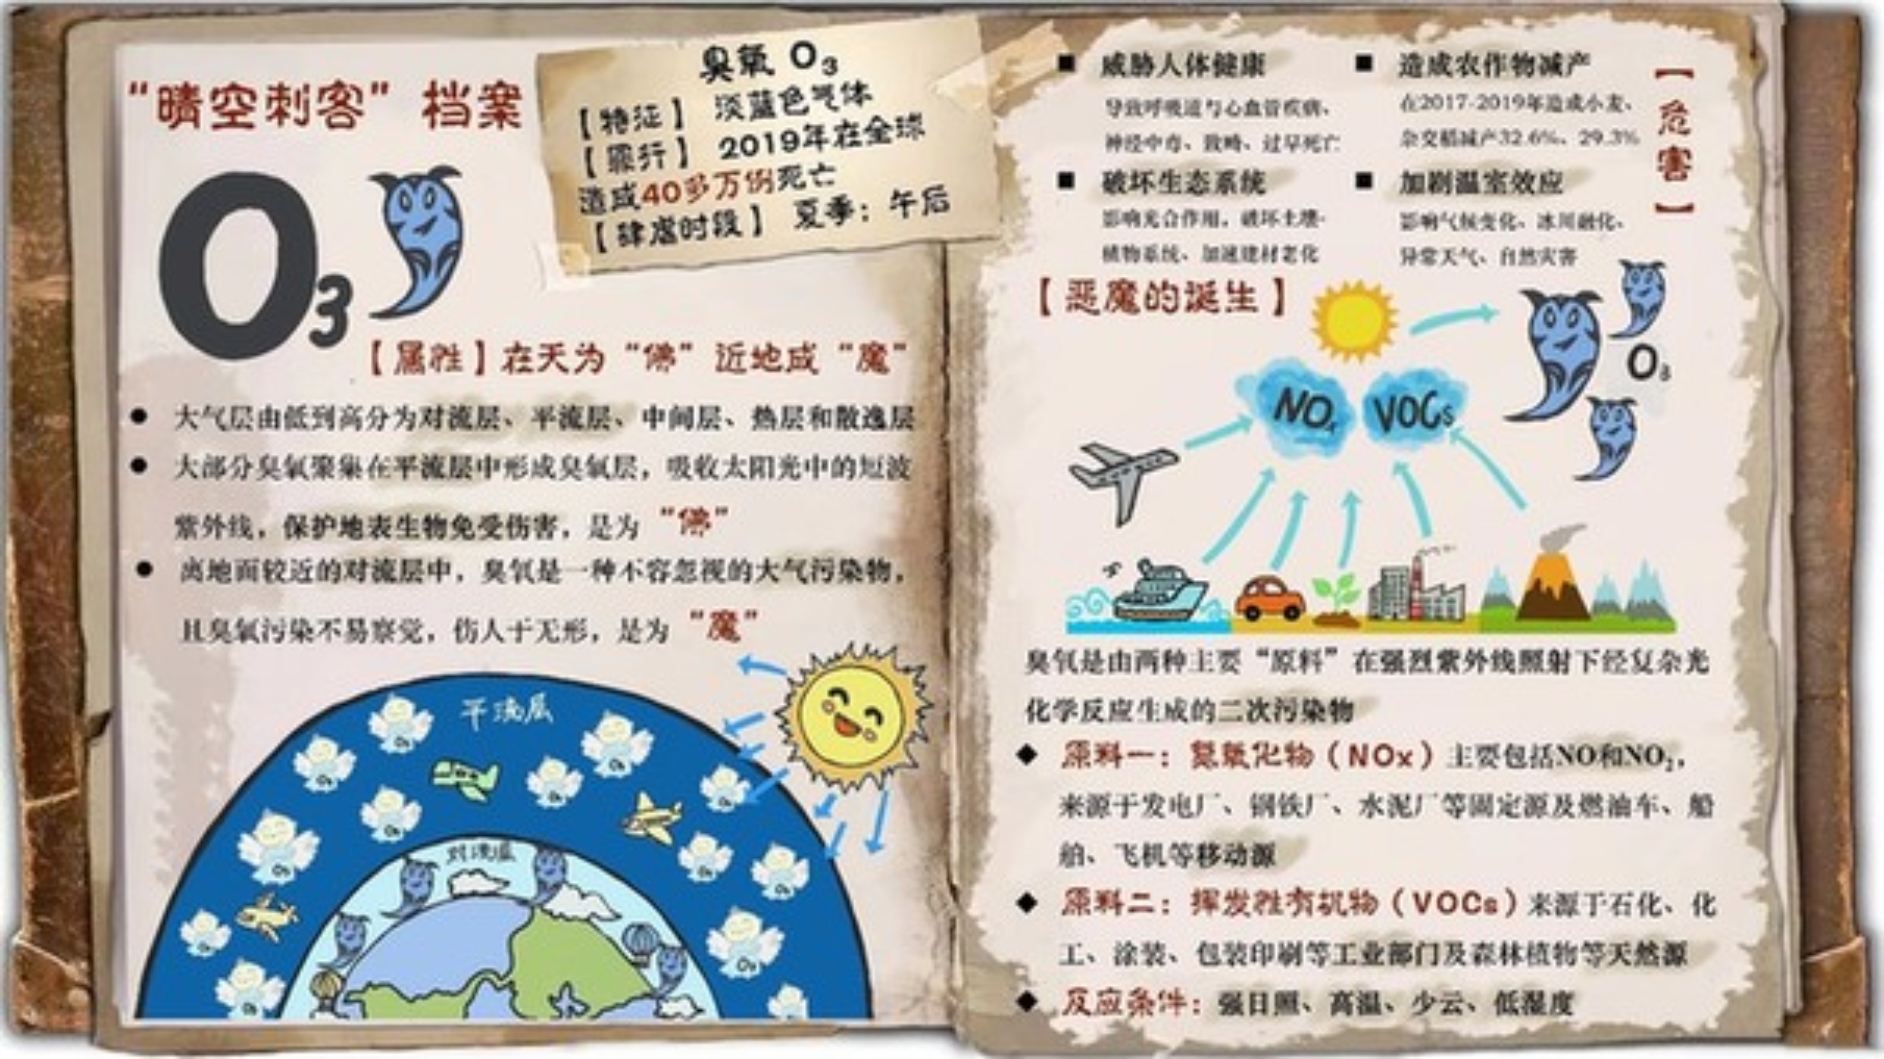 “晴空刺客”档案
O3
臭氧 O3
【特征】 淡蓝色气体
【罪行】 2019年在全球
造成40多万例死亡
【肆虐时段】 夏季：午后
【属性】在天为“佛”近地成“魔”
● 大气层由低到高分为对流层、平流层、中间层、热层和散逸层
● 大部分臭氧聚集在平流层中形成臭氧层，吸收太阳光中的短波
紫外线，保护地表生物免受伤害，是为“佛”
● 离地面较近的对流层中，臭氧是一种不容忽视的大气污染物，
且臭氧污染不易察觉，伤人于无形，是为“魔”
平流层
对流层
【危害】
■ 威胁人体健康
导致呼吸道与心血管疾病、
神经中毒、致畸、过早死亡
■ 造成农作物减产
在2017-2019年造成小麦、
杂交稻减产32.6%、29.3%
■ 破坏生态系统
影响光合作用，破坏土壤-
植物系统、加速建材老化
■ 加剧温室效应
影响气候变化、冰川融化、
异常天气、自然灾害
【恶魔的诞生】
NOx VOCs
O3
臭氧是由两种主要“原料”在强烈紫外线照射下经复杂光
化学反应生成的二次污染物
◆ 原料一：氮氧化物（NOx）主要包括NO和NO2，
来源于发电厂、钢铁厂、水泥厂等固定源及燃油车、船
舶、飞机等移动源
◆ 原料二：挥发性有机物（VOCs）来源于石化、化
工、涂装、包装印刷等工业部门及森林植物等天然源
◆ 反应条件：强日照、高温、少云、低湿度